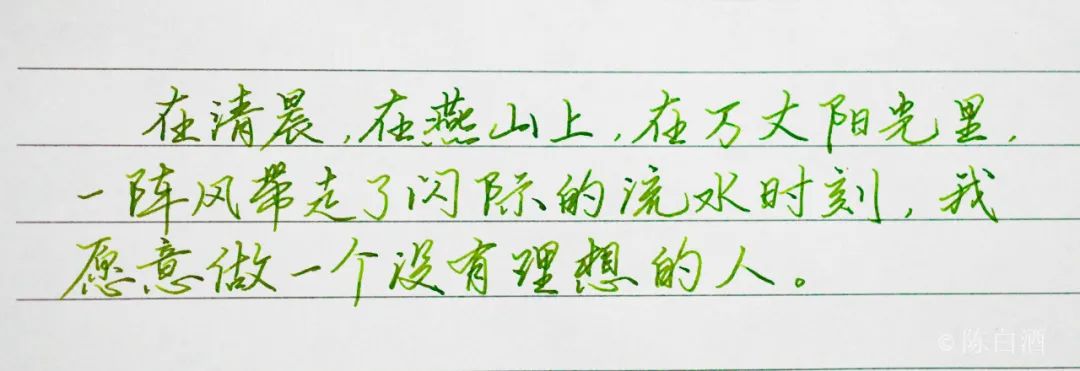 在清晨,在燕山上,在万丈阳光里,
一阵风带走了闪际的流水时刻,我
愿意做一个没有理想的人。
© 陈白酒